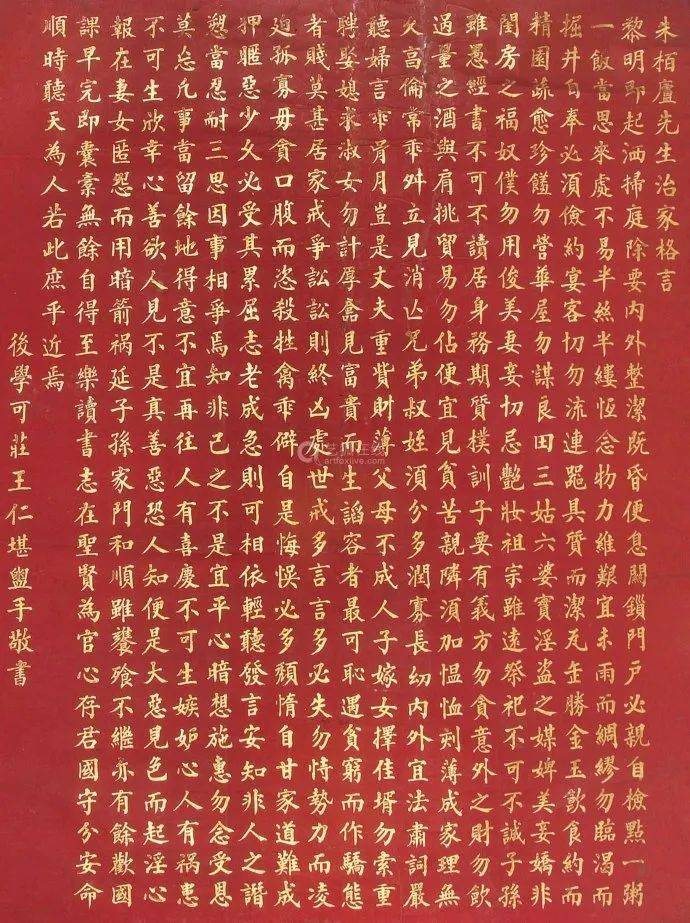 朱栢廬先生治家格言
黎明即起洒掃庭除要內外整潔既昏便息關鎖門戶必親自檢點一粥
一飯當思來處不易半絲半縷恆念物力維艱宜未雨而綢繆勿臨渴而
掘井自奉必須儉約宴客切勿流連噐具質而潔瓦缶勝金玉飲食約而
精園蔬愈珍饈勿營華屋勿謀良田三姑六婆實淫盜之媒婢美妾嬌非
閨房之福奴僕勿用俊美妻妾切忌艷妝祖宗雖遠祭祀不可不誠子孫
雖愚經書不可不讀居身務期質樸訓子要有義方勿貪意外之財勿飲
過量之酒與肩挑貿易勿佔便宜見貧苦親隣須加愠恤刻薄成家理無
久享倫常乖舛立見消亾兄弟叔姪須分多潤寡長幼內外宜法肅詞嚴
聽婦言乖骨月豈是丈夫重貲財薄父母不成人子嫁女擇佳壻勿索重
聘娶媳求淑女勿計厚奩見富貴而生謟容者最可恥遇貧窮而作驕態
者賤莫甚居家戒爭訟訟則終凶處世戒多言言多必失勿恃勢力而凌
廹孤寡毋貪口腹而恣殺牲禽乖僻自是悔悞必多頹惰自甘家道難成
狎暱惡少久必受其累屈志老成急則可相依輕聽發言安知非人之譖
愬當忍耐三思因事相爭焉知非己之不是宜平心暗想施惠勿念受恩
莫忘凡事當留餘地得意不宜再往人有喜慶不可生嫉妒心人有禍患
不可生欣幸心善欲人見不是真善惡恐人知便是大惡見色而起淫心
報在妻女匿怨而用暗箭禍延子孫家門和順雖饔飧不繼亦有餘歡國
課早完即囊橐無餘自得至樂讀書志在聖賢為官心存君國守分安命
順時聽天為人若此庶乎近焉
後學可莊王仁堪盥手敬書
艺狐在线
artfoxlive.com